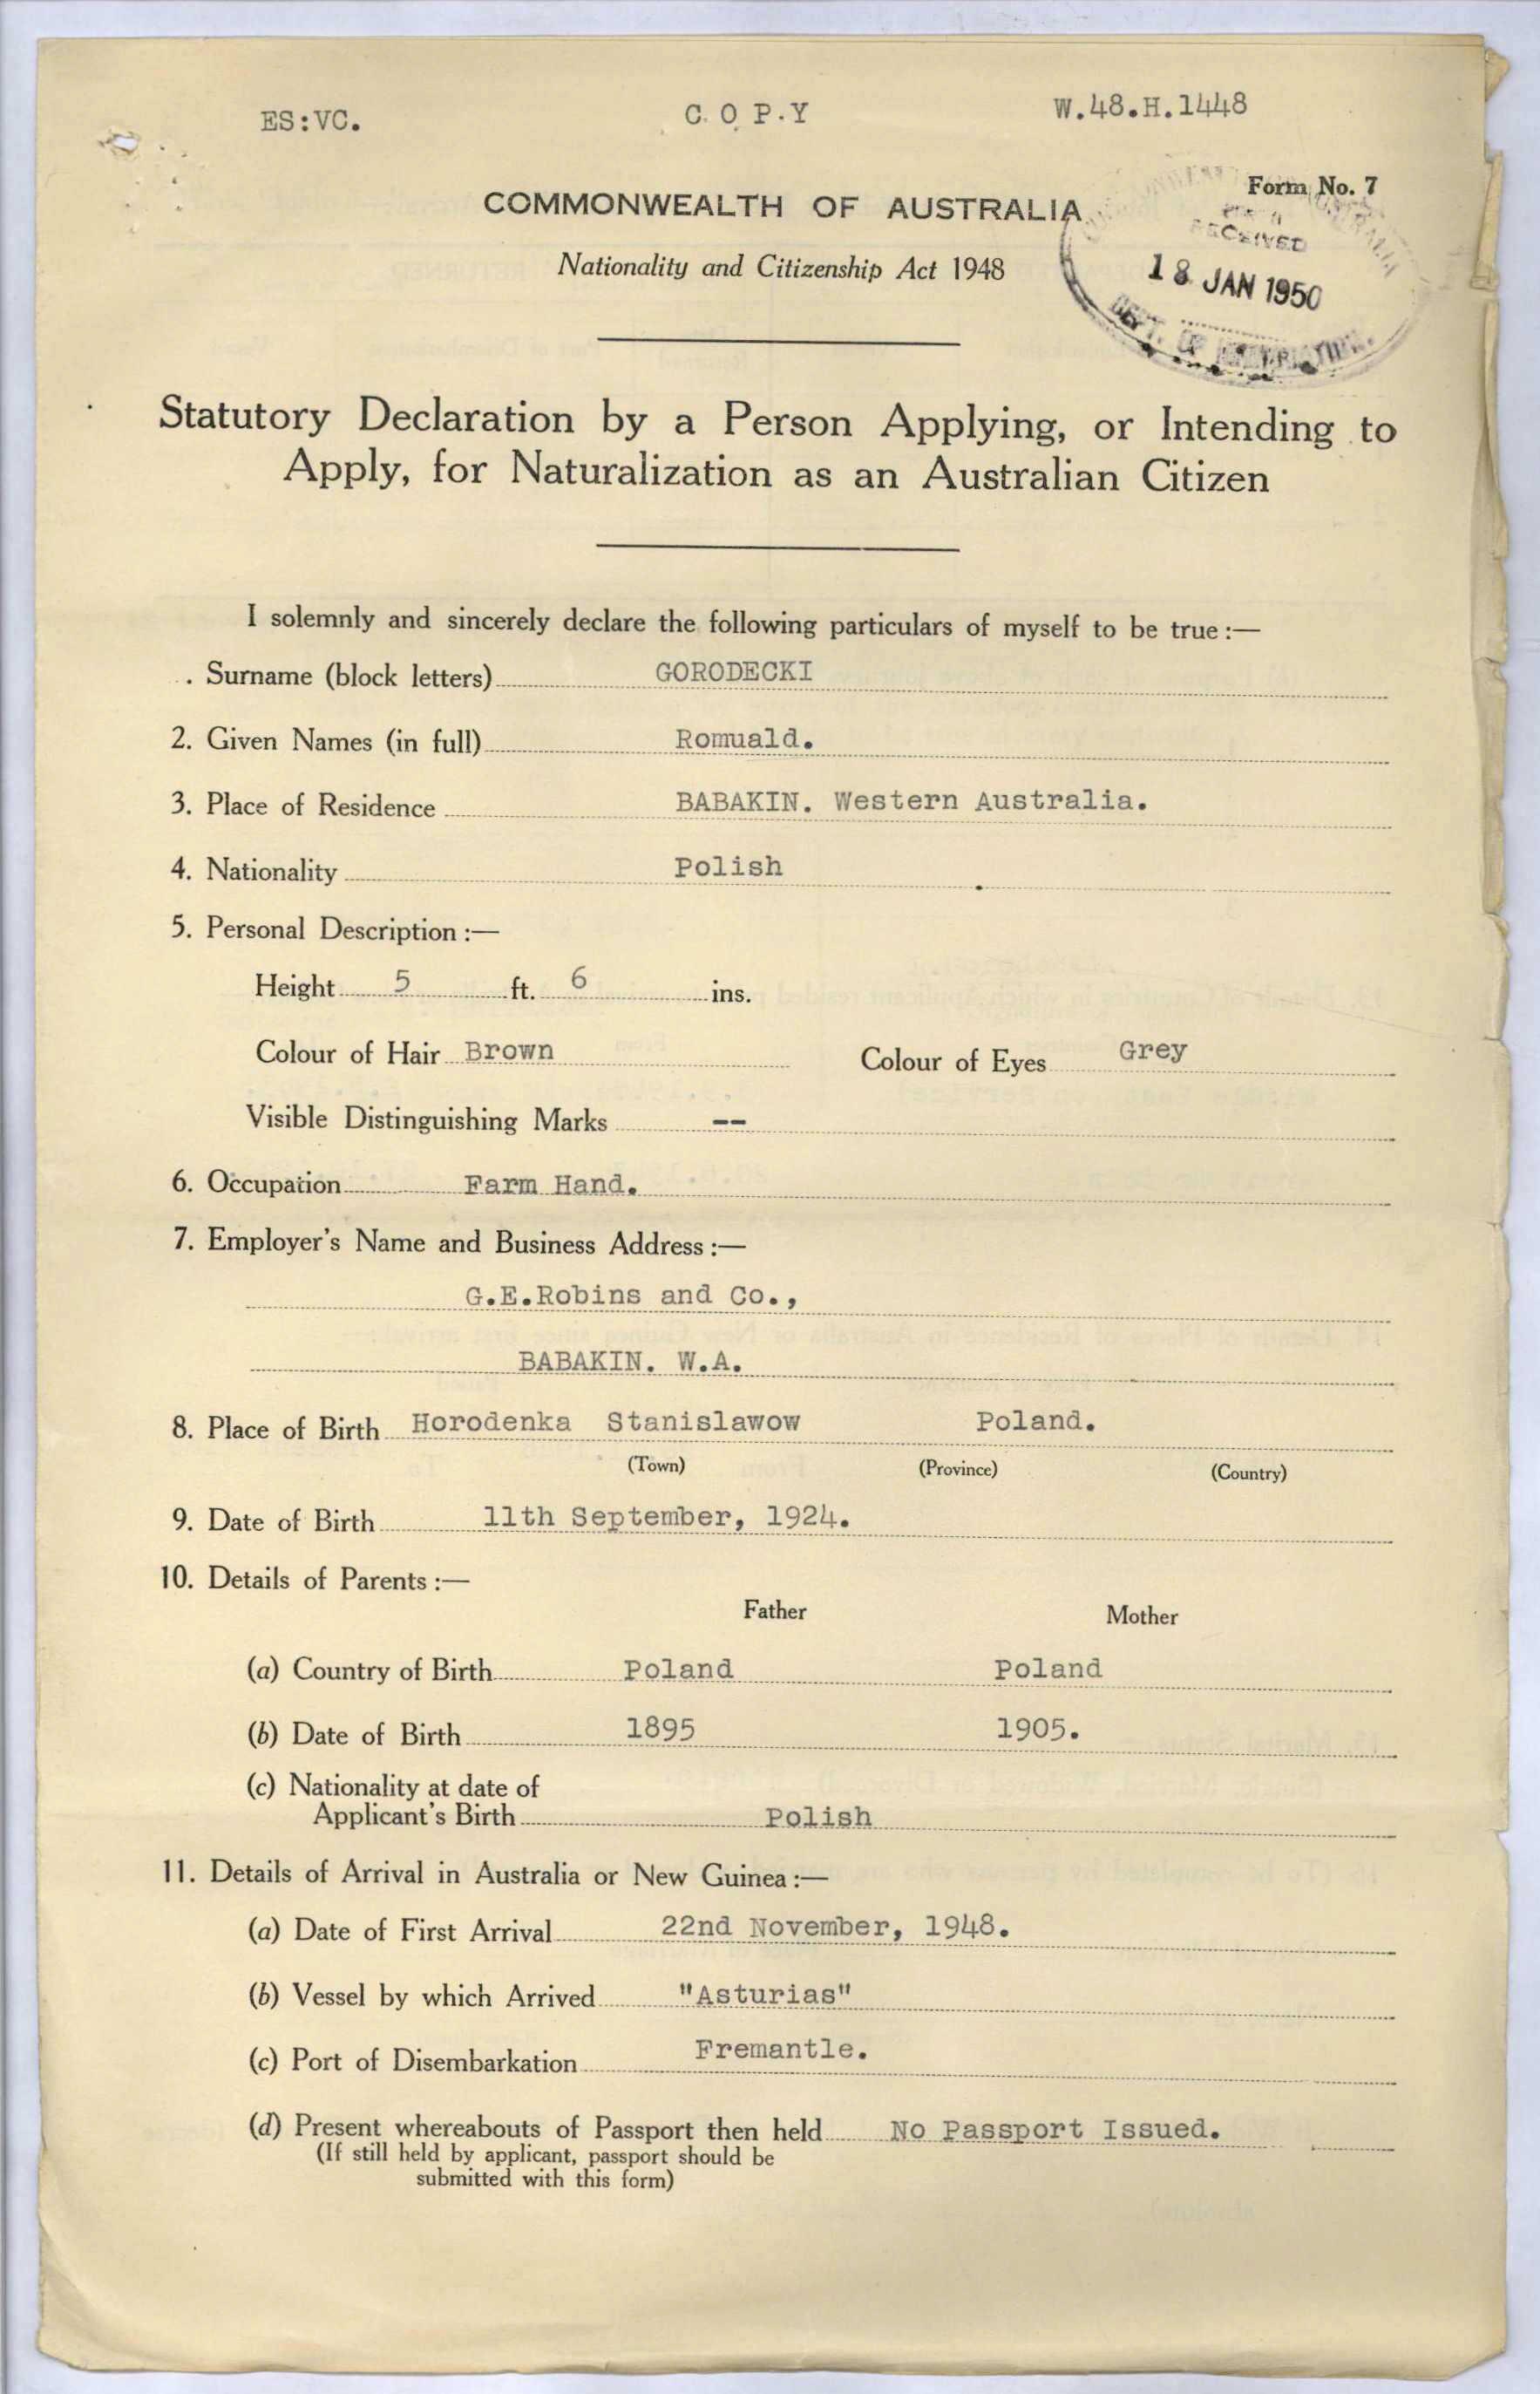 ES:VC.
C.O.P.Y
W.48.H.1448
Form No. 7
COMMONWEALTH OF AUSTRALIA
Nationality and Citizenship Act 1948
RECEIVED
18 JAN 1950
Statutory Declaration by a Person Applying, or Intending to
Apply, for Naturalization as an Australian Citizen
I solemnly and sincerely declare the following particulars of myself to be true :—
. Surname (block letters) GORODECKI
2. Given Names (in full) Romuald.
3. Place of Residence BABAKIN. Western Australia.
4. Nationality Polish
5. Personal Description :—
Height 5 ft. 6 ins.
Colour of Hair Brown Colour of Eyes Grey
Visible Distinguishing Marks --
6. Occupation Farm Hand.
7. Employer's Name and Business Address :—
G.E.Robins and Co.,
BABAKIN. W.A.
8. Place of Birth Horodenka Stanislawow Poland.
(Town) (Province) (Country)
9. Date of Birth 11th September, 1924.
10. Details of Parents :—
Father Mother
(a) Country of Birth Poland Poland
(b) Date of Birth 1895 1905.
(c) Nationality at date of
Applicant's Birth Polish
11. Details of Arrival in Australia or New Guinea :—
(a) Date of First Arrival 22nd November, 1948.
(b) Vessel by which Arrived "Asturias"
(c) Port of Disembarkation Fremantle.
(d) Present whereabouts of Passport then held No Passport Issued.
(If still held by applicant, passport should be
submitted with this form)